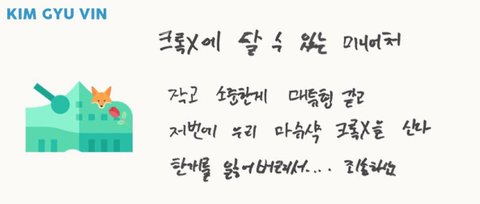 KIM GYU VIN
크록X에 달 수 있는 미니어처
작고 소중한게 매튜형 같고
저번에 우리 마슈삭 크록X을 신다
한개를 잃어버려서.... 죄송하쇼